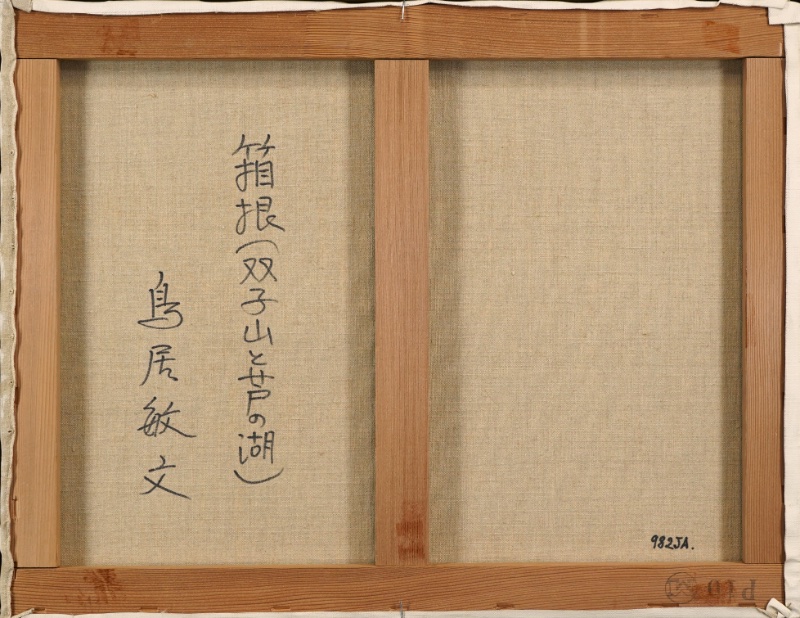 箱根(双子山と芦の湖)
鳥居敏文
982JA.